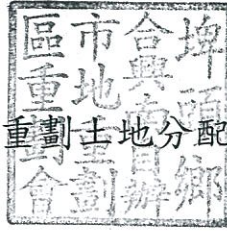 埤頭鄉
合興自辦
市地重劃
區重劃會
重劃土地分配